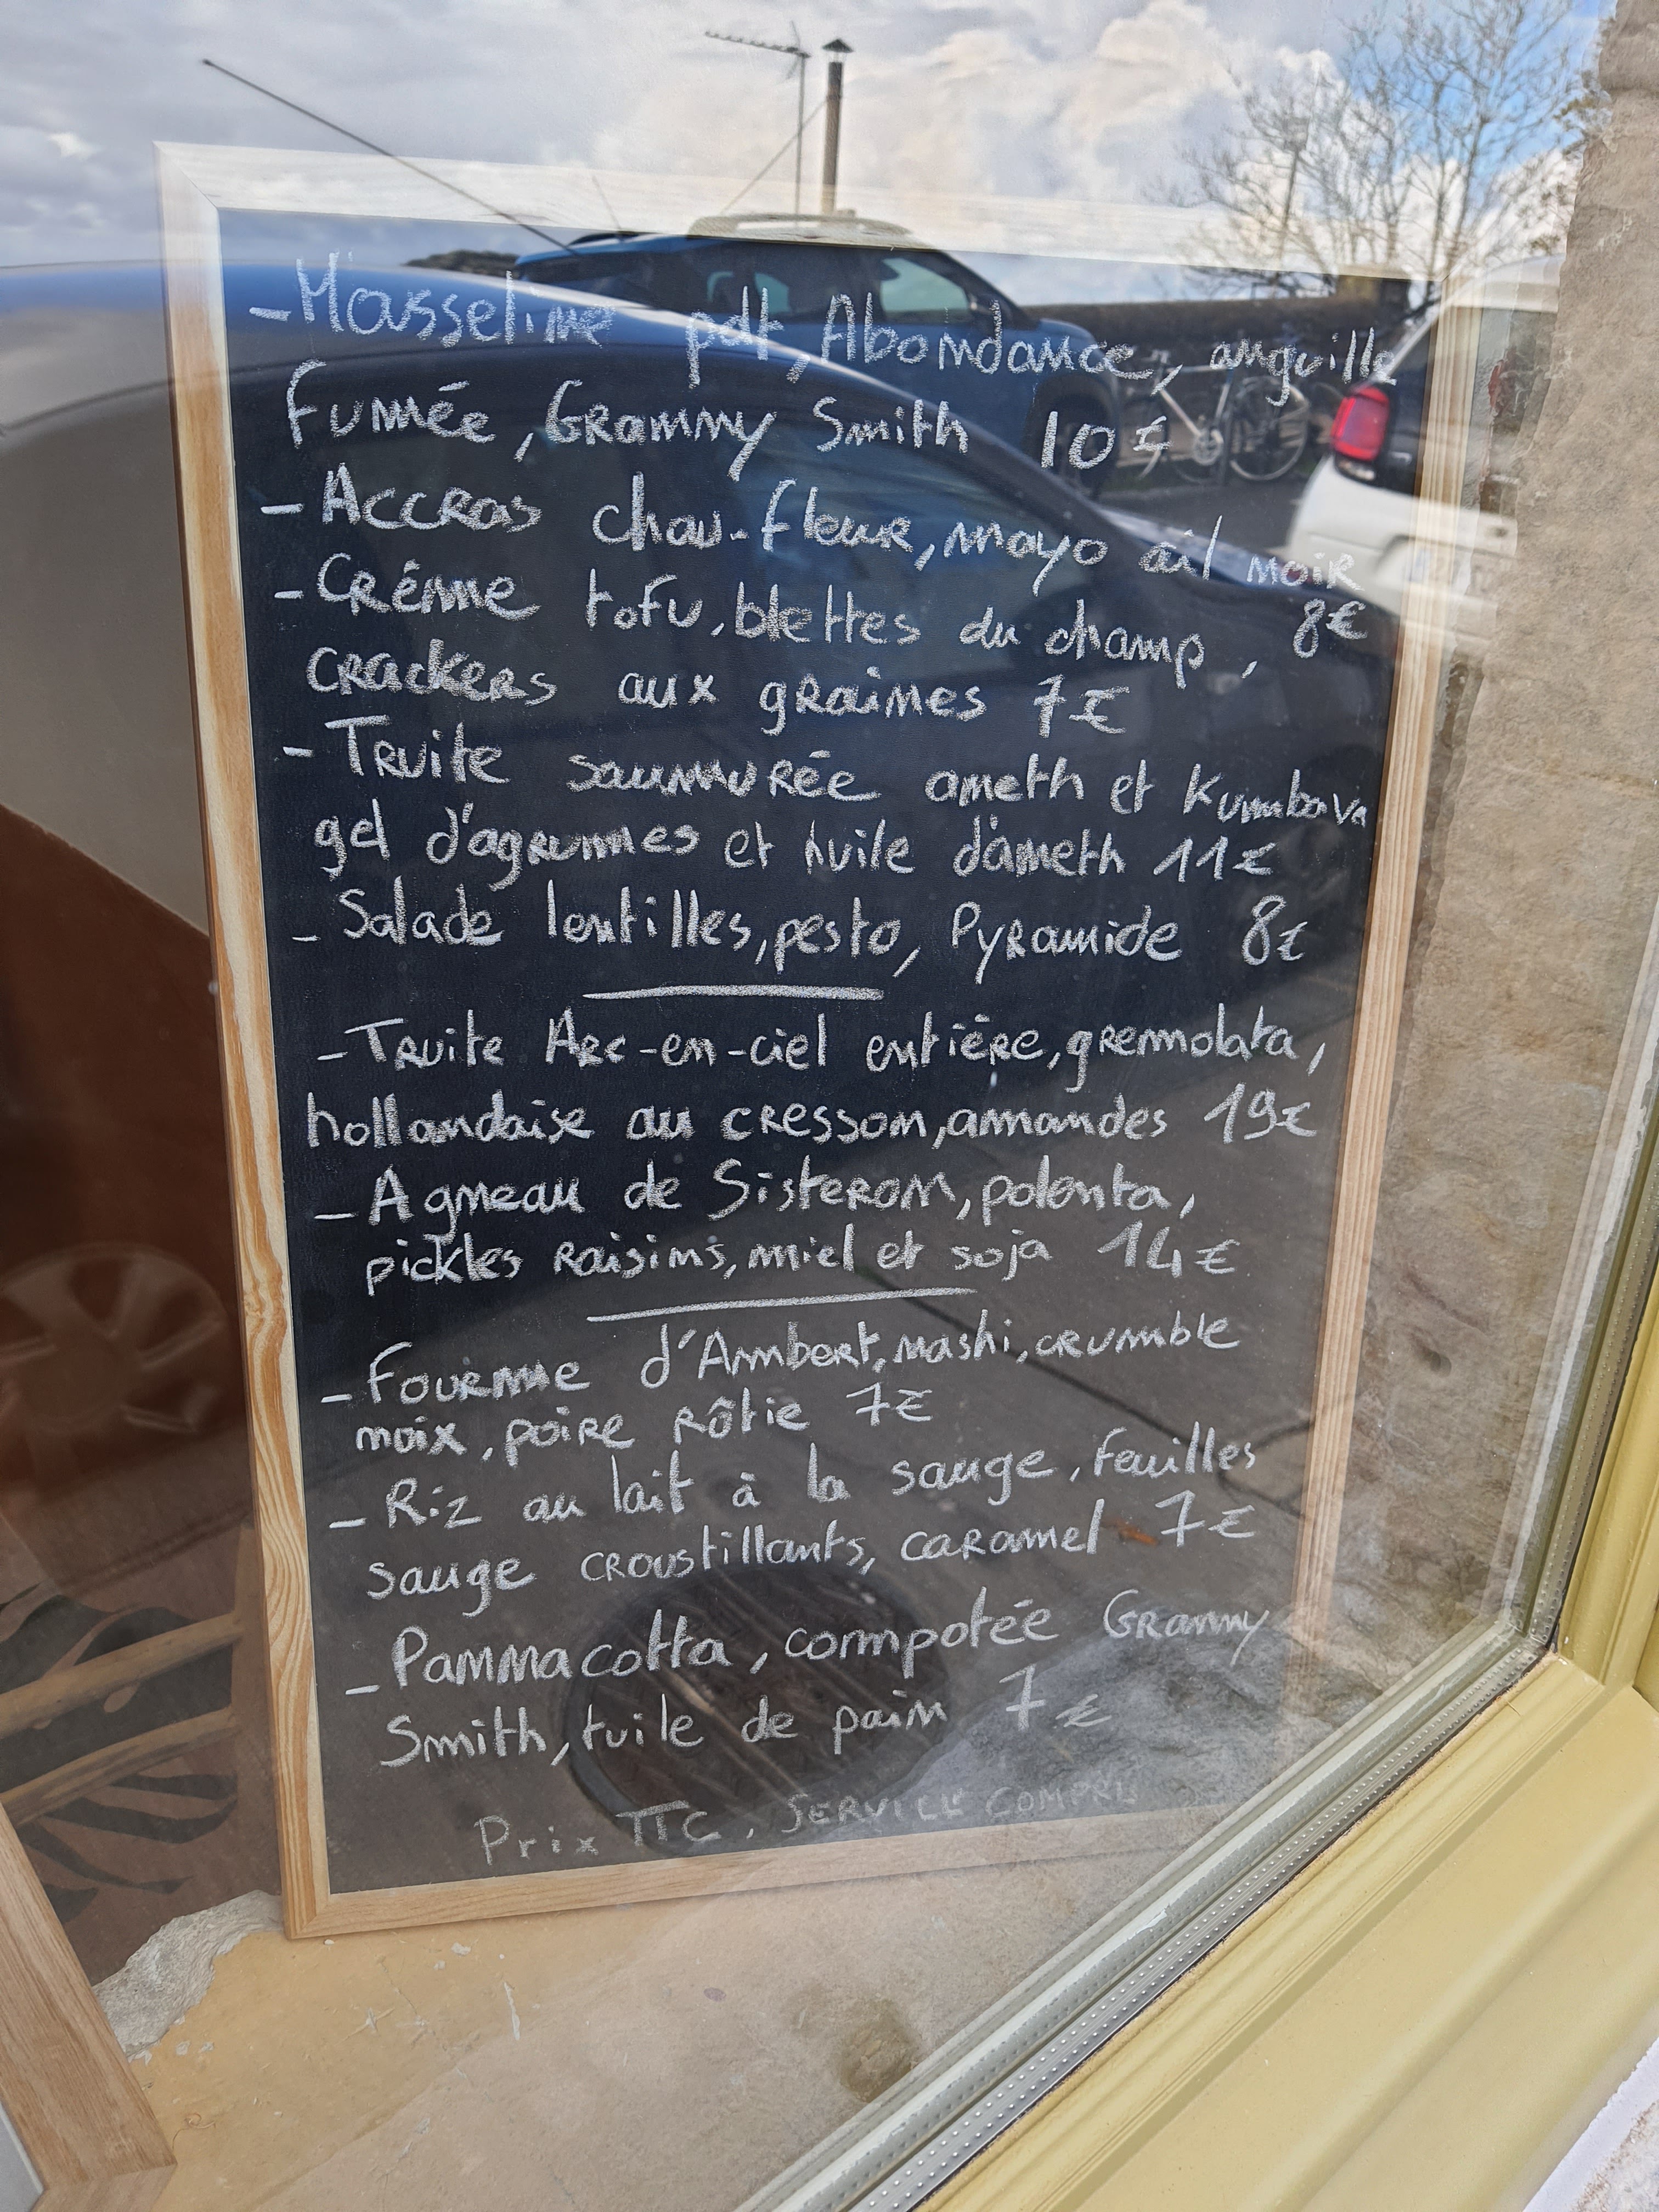 - Mousseline pdt, Abondance, anguille
Fumée, Granny Smith 10€
- Accras chou-fleur, mayo ail noir
8€
- Crème tofu, blettes du champ,
crackers aux graines 7€
- Truite saumurée aneth et Kumbava
gel d'agrumes et tuile d'aneth 11€
- Salade lentilles, pesto, Pyramide 8€
- Truite Arc-en-ciel entière, gremolata,
hollandaise au cresson, amandes 19€
- Agneau de Sisteron, polenta,
pickles raisins, miel et soja 14€
- Fourme d'Ambert, nashi, crumble
noix, poire rôtie 7€
- Riz au lait à la sauge, feuilles
sauge croustillants, caramel 7€
- Pannacotta, compotée Granny
Smith, tuile de pain 7€
Prix TTC, SERVICE COMPRIS